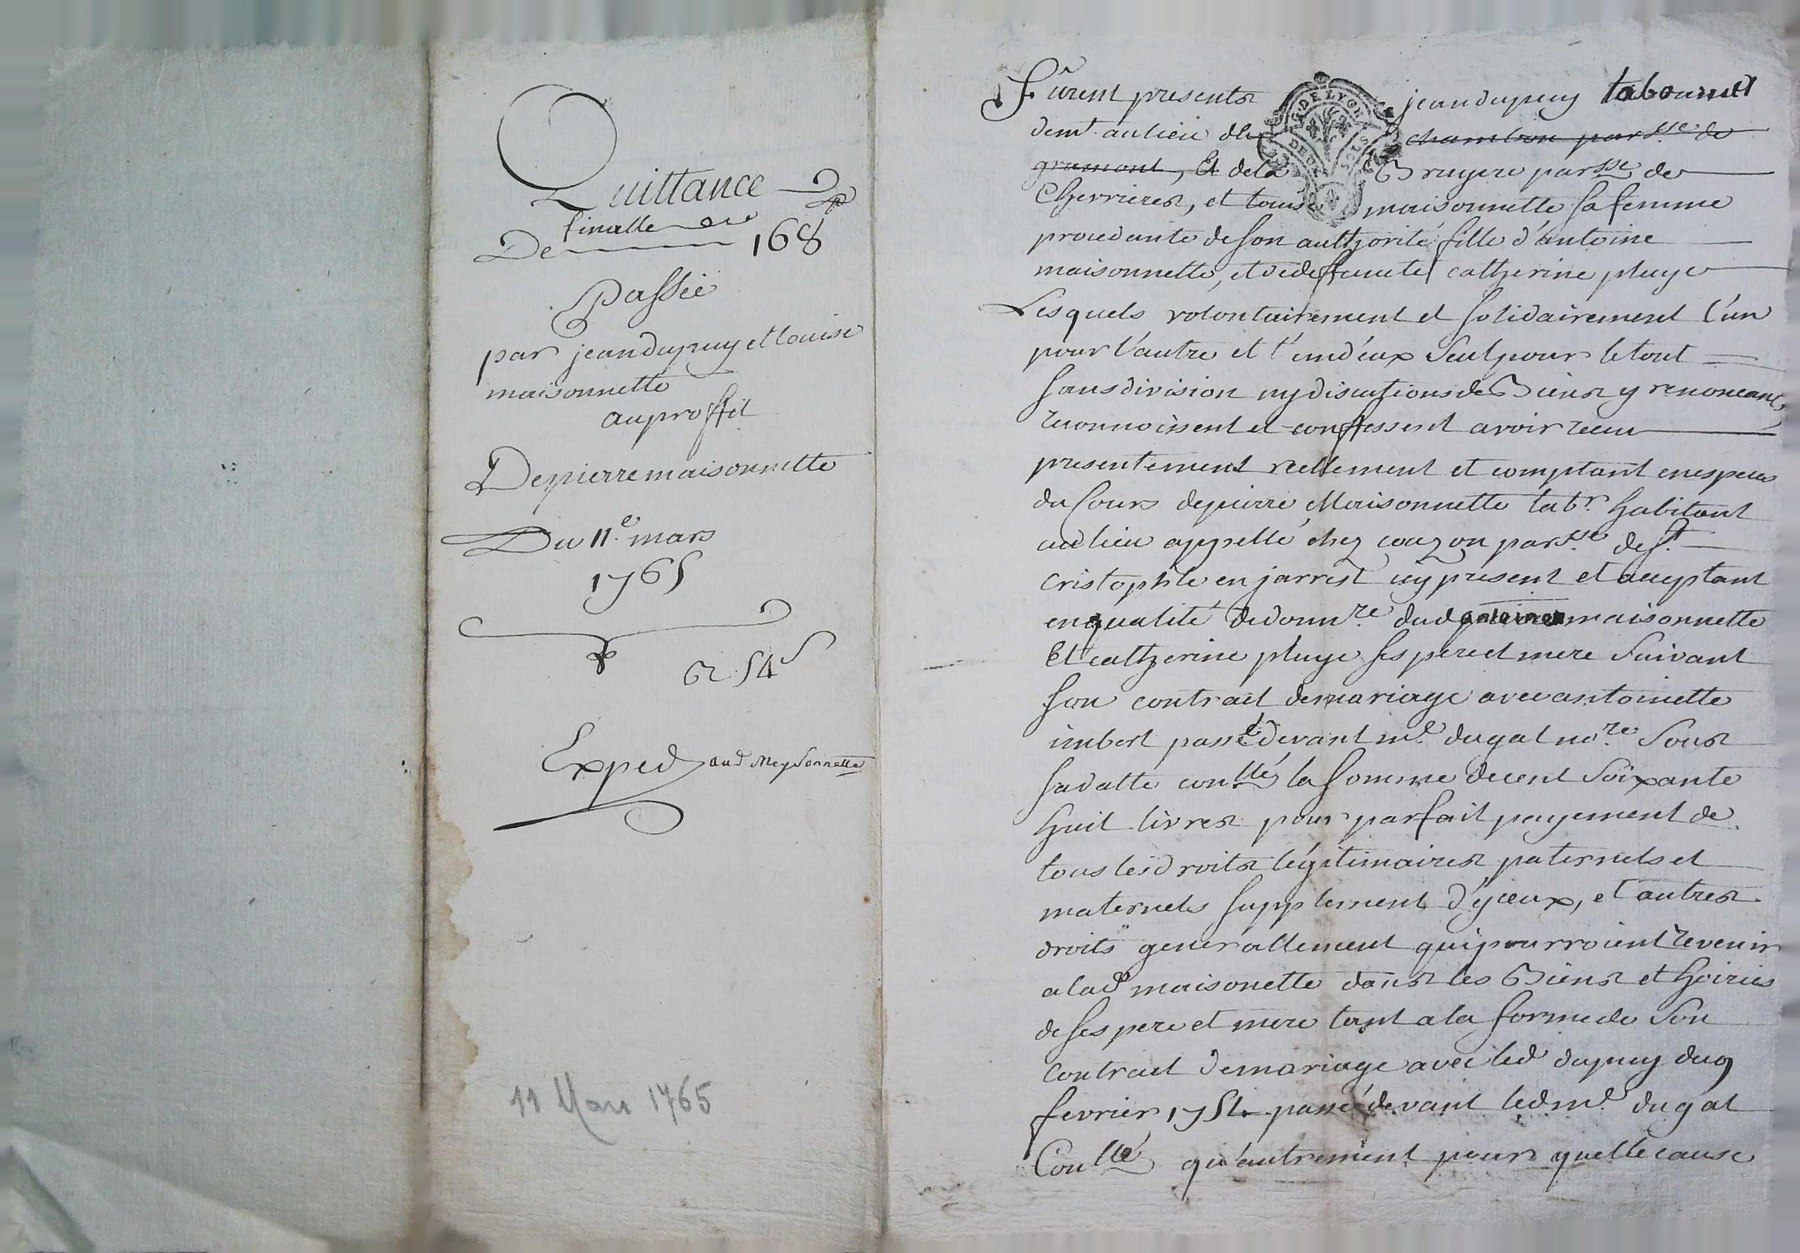 Quittance
finalle
De 168
Passée
par jean dupuy et louise
maisonnette
au proffit
De pierre maisonnette
Du 11e. mars
1765
62. 54s
Exped aud Meysonnette
11 Mars 1765
Fûrent presents jean dupuy laboureur
demt. au lieu de chambon parsse. de
gramont, Et de la Bruyere parsse de
Cherrieres, et louise maisonnette sa femme
procedante de son authorité fille d'antoine
maisonnette, et de deffuncte catherine pluye
Lesquels volontairement et solidairement l'un
pour l'autre et l'un d'eux seul pour le tout
sans division ny discutions de Biens y renoncants
reconnoissent et confessent avoir receu
presentement reellement et comptant en especes
du Cours de pierre Maisonnette labr. habitant
au lieu appellé chez couzon parsse. de st.
cristophle en jarrest icy present et acceptant
en qualité de donnre. dud antoine maisonnette
Et catherine pluye ses pere et mere suivant
son contract de mariage avec antoinette
imbert passé devant me. dugat nore. sous
sa datte conllé, la somme de cent soixante
huit livres pour parfait payement de
tous les droits légitimaires paternels et
maternels supplement d'yceux, et autres
droits generallement qui pourroient revenir
a lad maisonette dans les Biens et hoiries
de ses pere et mere tant a la forme de son
contract de mariage avec led dupuy du 9
fevrier 1751. passé devant led me. dugat
Conllé qu'autrement pour quelle cause
DE LYON
DEUX SOLS